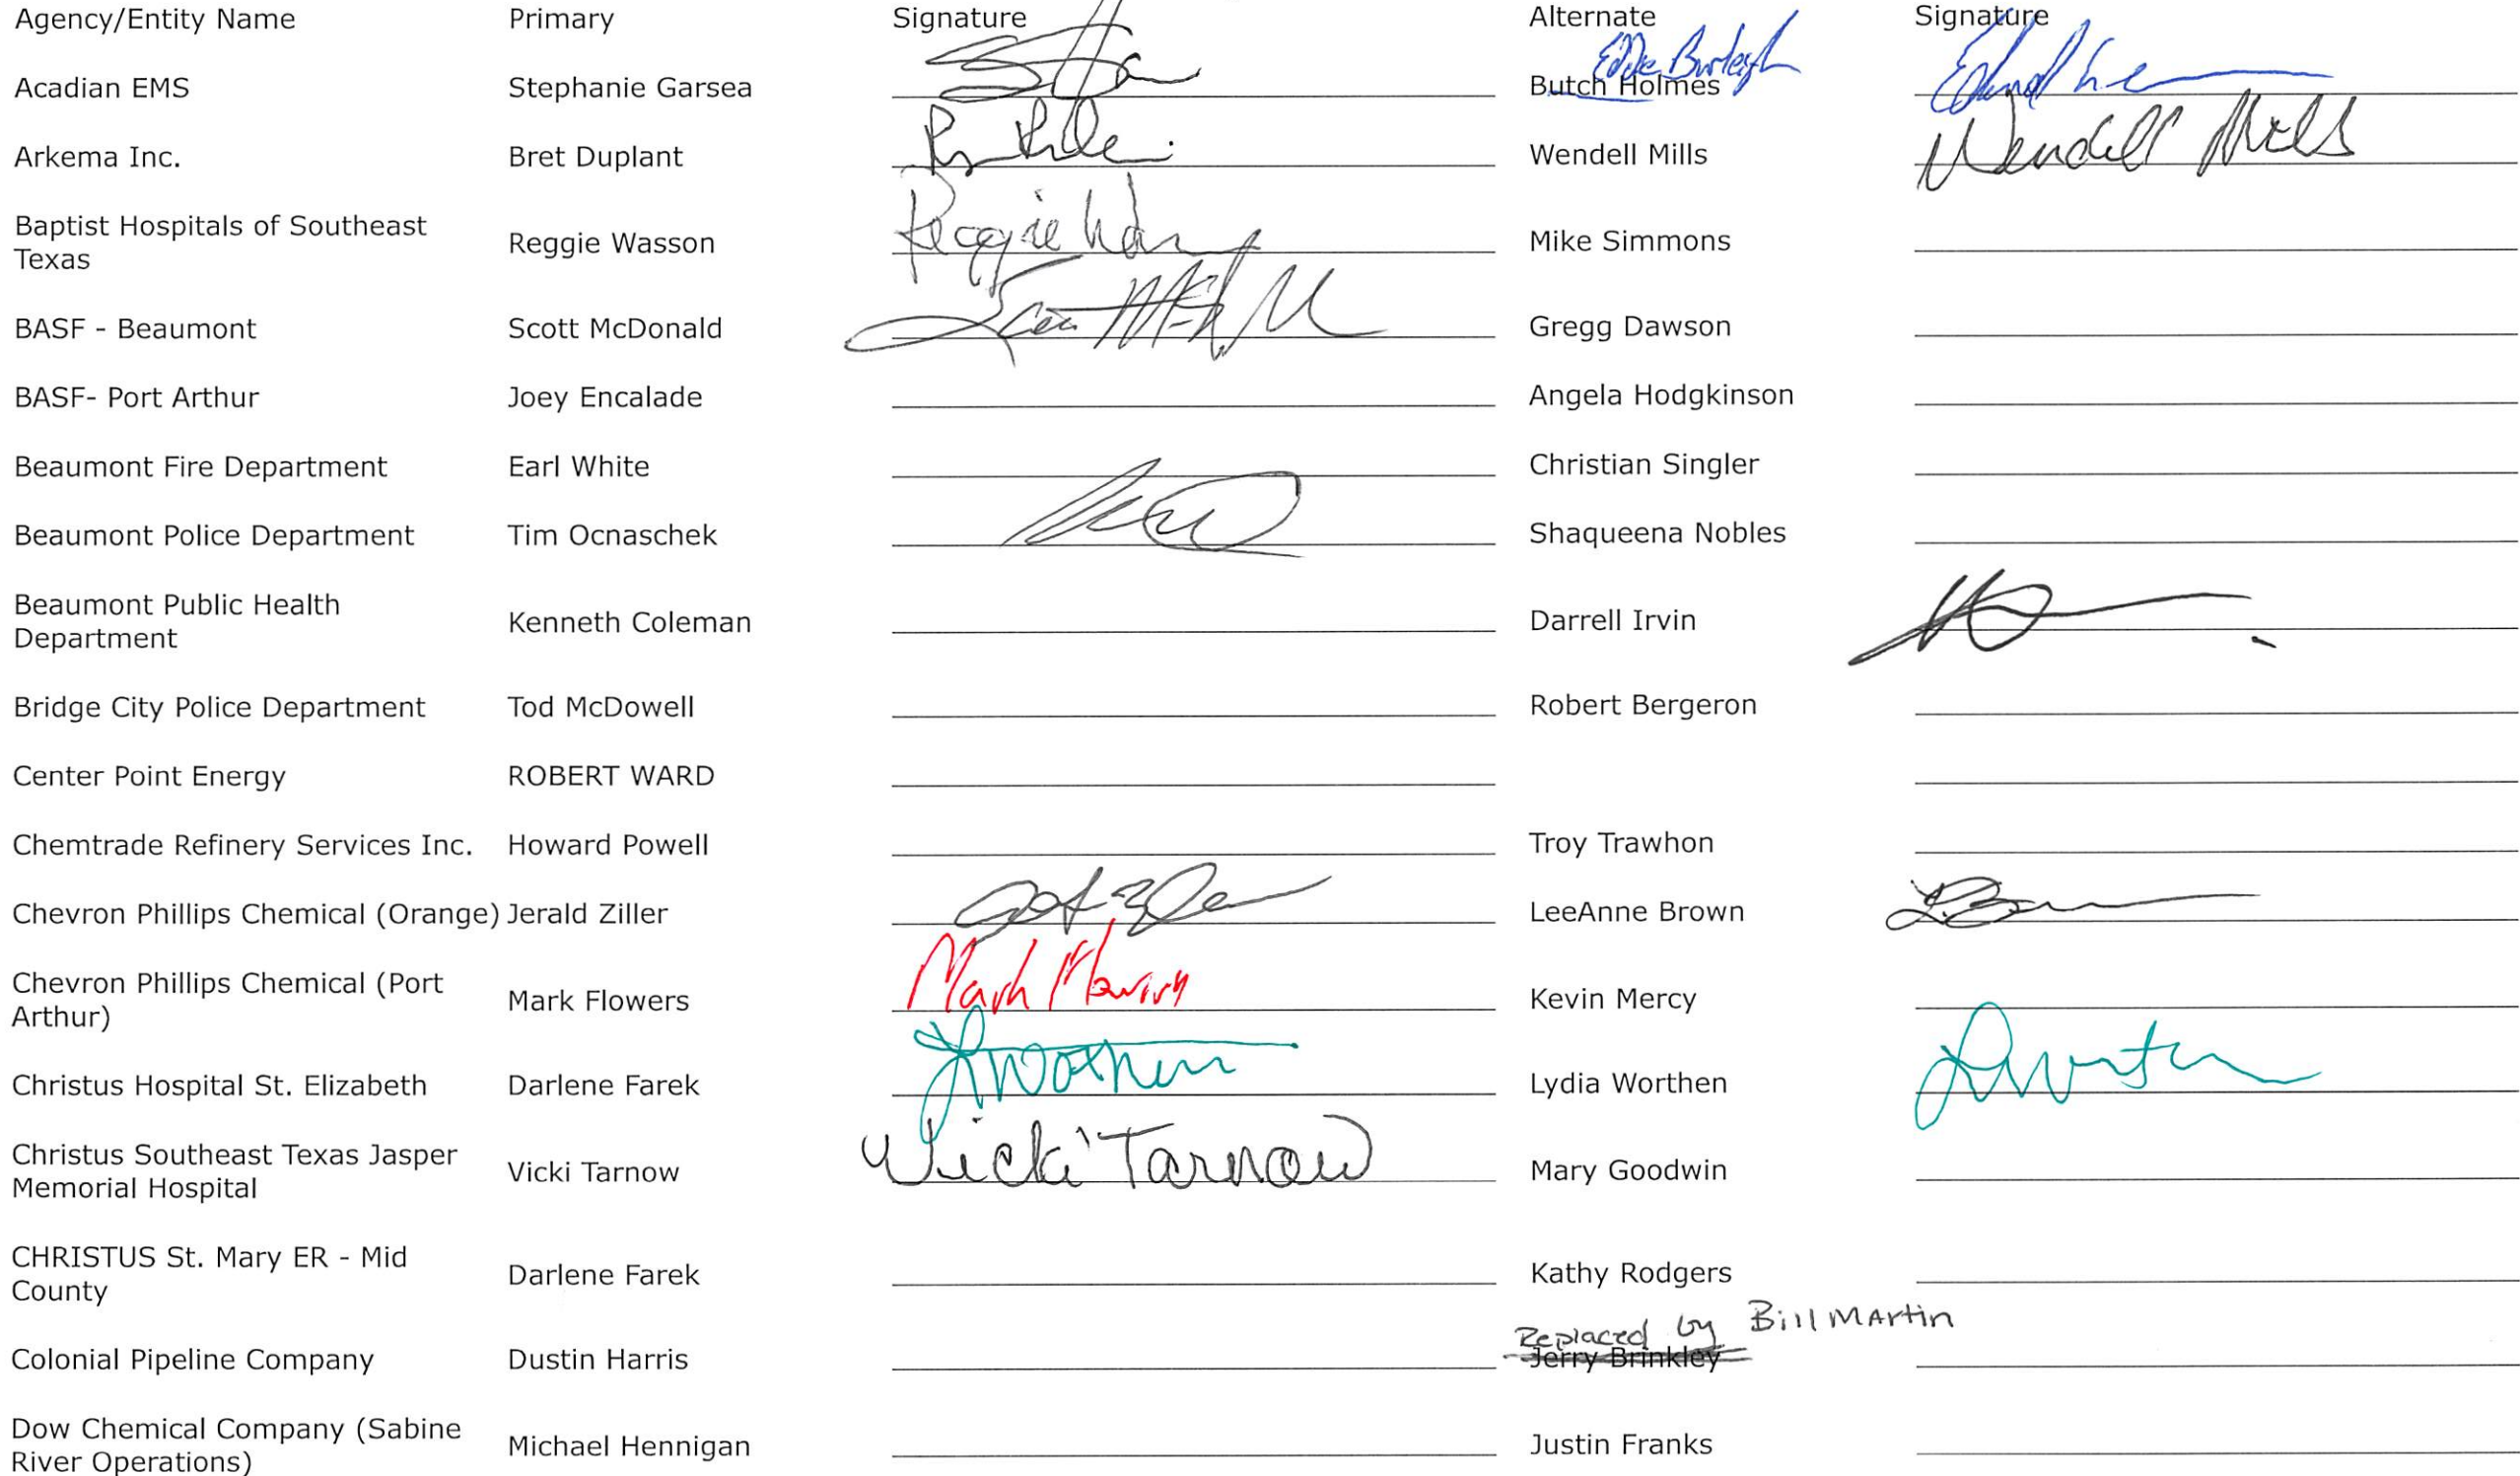 Agency/Entity Name Primary Signature Alternate Signature
Eddie Burleigh
Acadian EMS Stephanie Garsea Butch Holmes
Arkema Inc. Bret Duplant Wendell Mills Wendell Mills
Baptist Hospitals of Southeast
Texas
Reggie Wasson Reggie Mike Simmons
BASF - Beaumont Scott McDonald Gregg Dawson
BASF- Port Arthur Joey Encalade Angela Hodgkinson
Beaumont Fire Department Earl White Christian Singler
Beaumont Police Department Tim Ocnaschek Shaqueena Nobles
Beaumont Public Health
Department
Kenneth Coleman Darrell Irvin
Bridge City Police Department Tod McDowell Robert Bergeron
Center Point Energy ROBERT WARD
Chemtrade Refinery Services Inc. Howard Powell Troy Trawhon
Chevron Phillips Chemical (Orange) Jerald Ziller LeeAnne Brown
Chevron Phillips Chemical (Port
Arthur)
Mark Flowers Mark Flowers Kevin Mercy
Christus Hospital St. Elizabeth Darlene Farek LWorthen Lydia Worthen LWorthen
Christus Southeast Texas Jasper
Memorial Hospital
Vicki Tarnow Vicki Tarnow Mary Goodwin
CHRISTUS St. Mary ER - Mid
County
Darlene Farek Kathy Rodgers
Replaced by Bill Martin
Colonial Pipeline Company Dustin Harris Jerry Brinkley
Dow Chemical Company (Sabine
River Operations)
Michael Hennigan Justin Franks